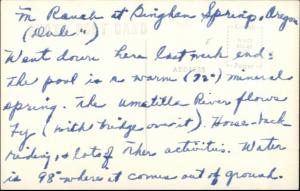 "M Ranch at Bingham Spring, Oregon
(Dude")
Went down here last week end.
the pool is a warm (92°) mineral
spring. The Umatilla River flows
by (with bridge over it). Horse-back
riding, & lots of other activities. Water
is 98° where it comes out of ground.